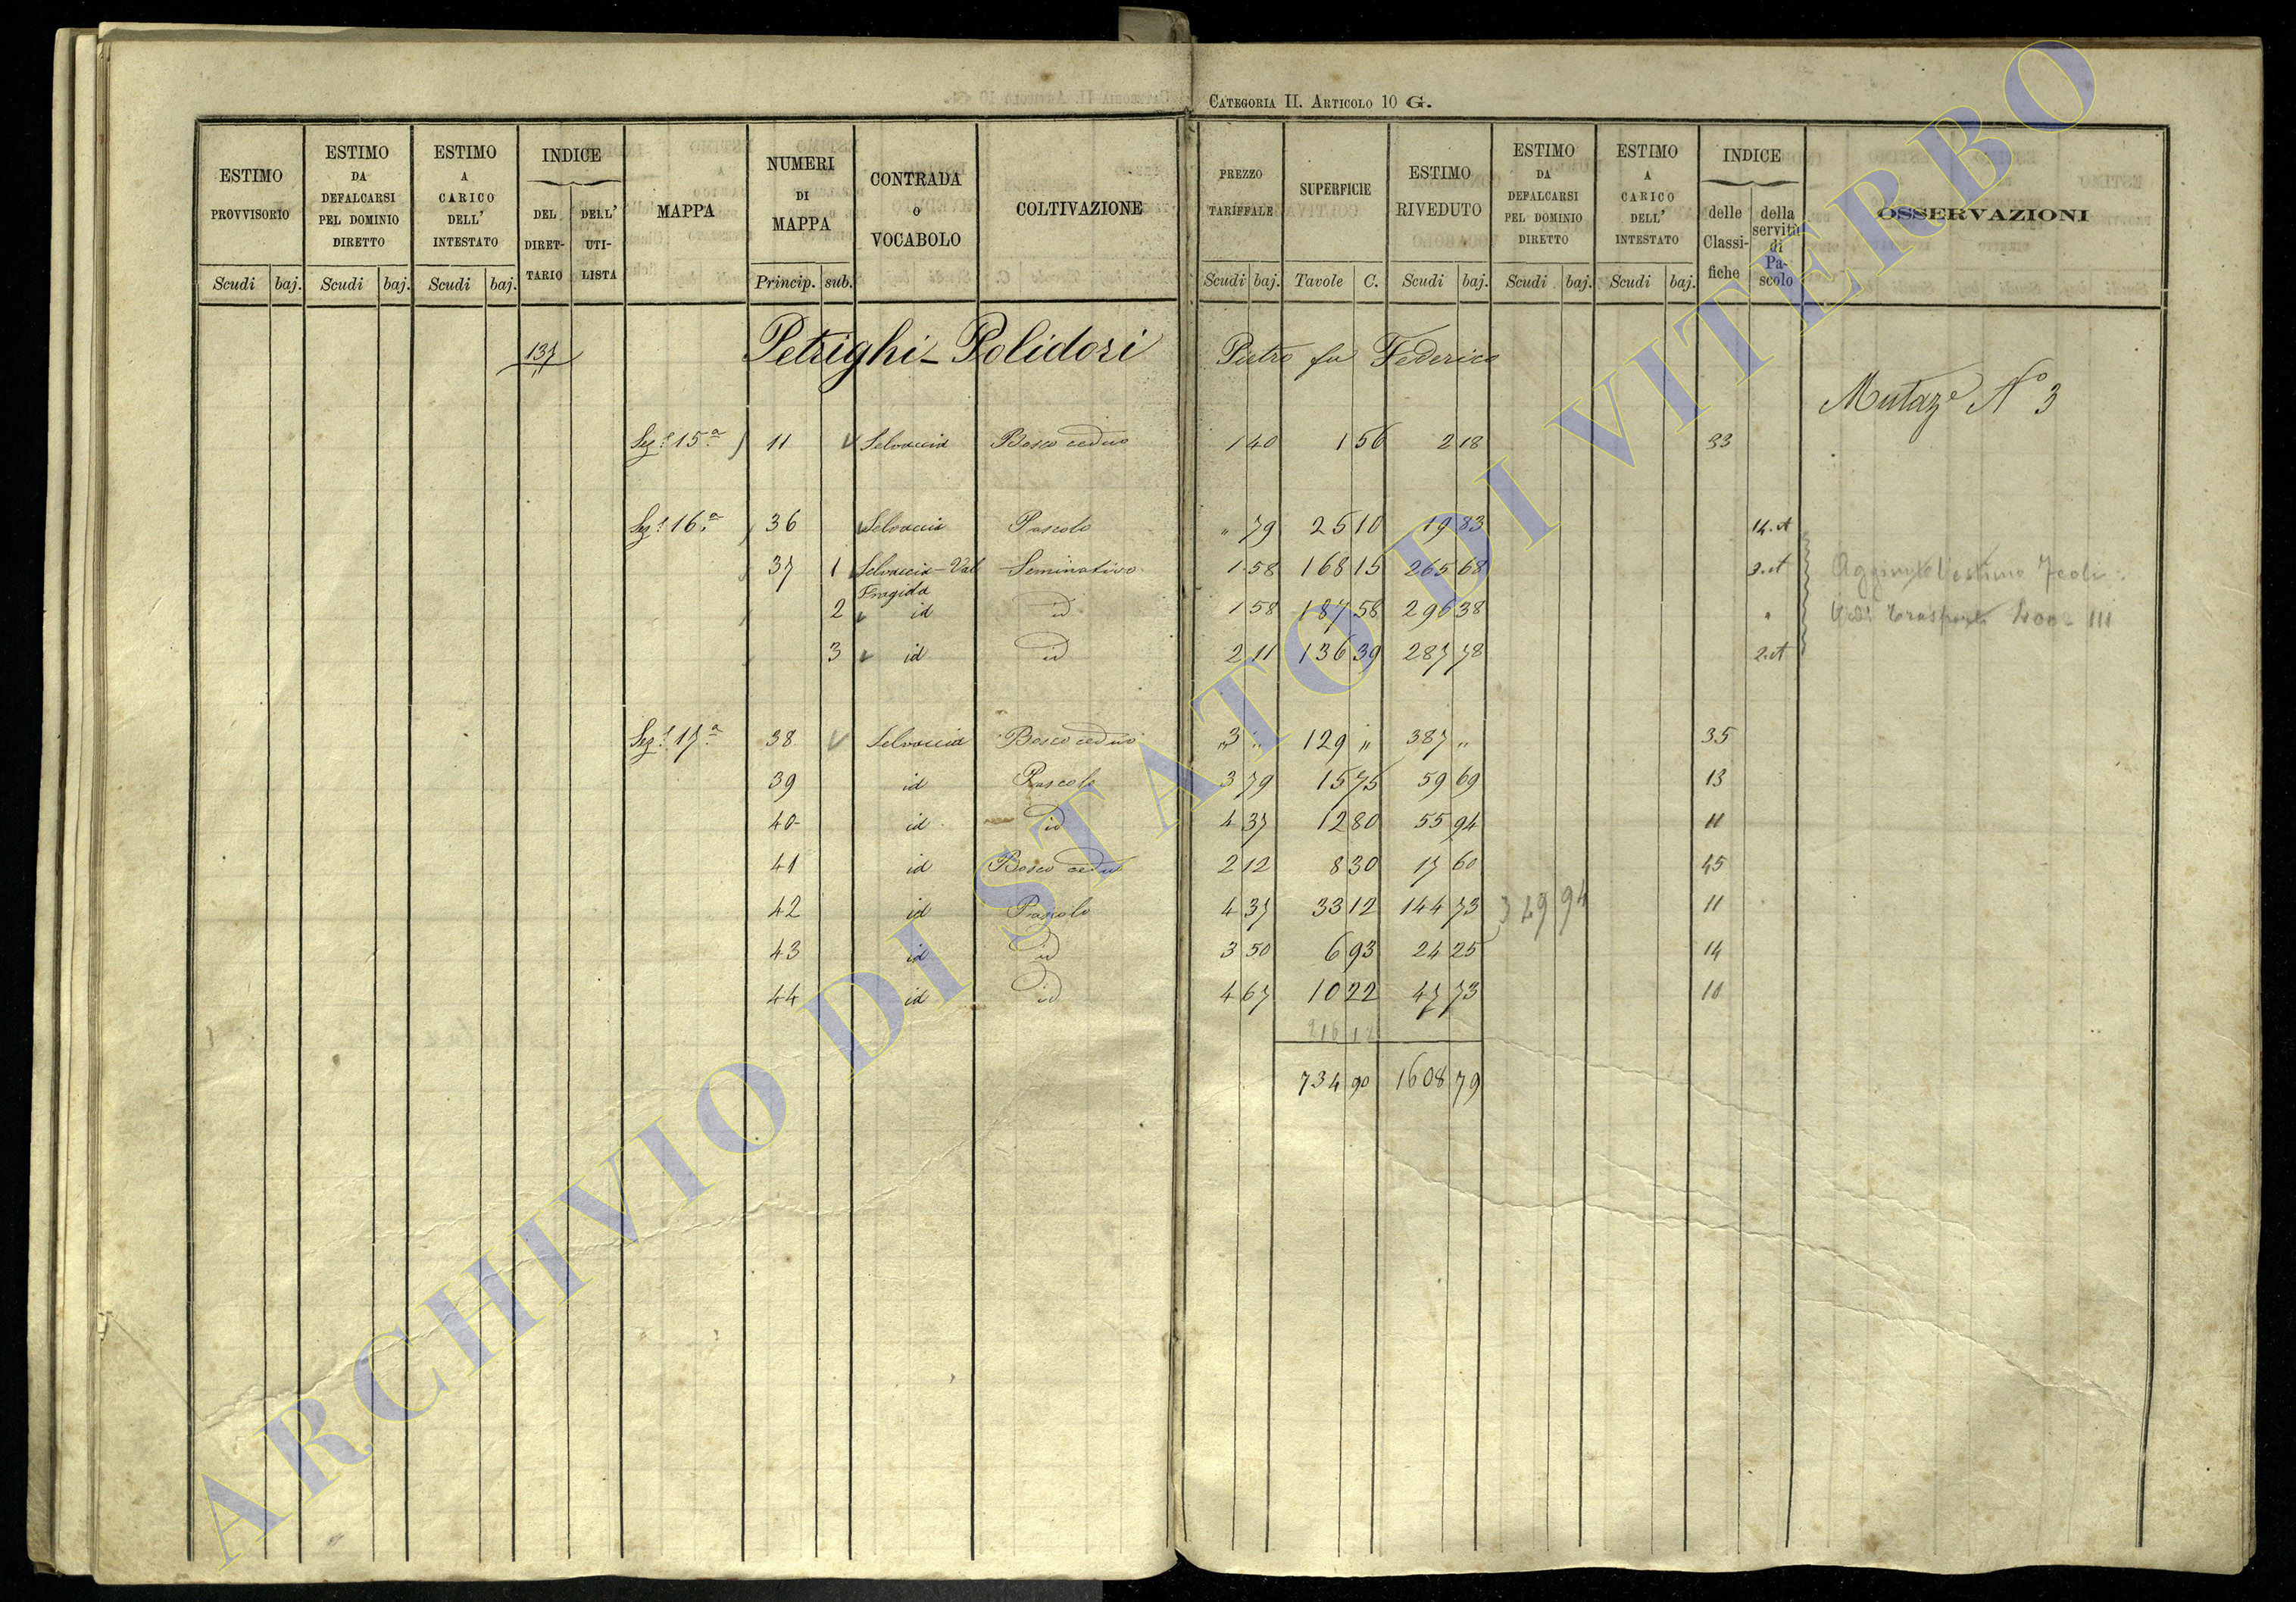 CATEGORIA II. ARTICOLO 10 G.
ESTIMO PROVVISORIO | ESTIMO DA DEFALCARSI PEL DOMINIO DIRETTO | ESTIMO A CARICO DELL' INTESTATO | INDICE DEL DIRETTARIO | DELL' UTILISTA | MAPPA | NUMERI DI MAPPA | CONTRADA O VOCABOLO | COLTIVAZIONE | PREZZO TARIFFALE | SUPERFICIE | ESTIMO RIVEDUTO | ESTIMO DA DEFALCARSI PEL DOMINIO DIRETTO | ESTIMO A CARICO DELL' INTESTATO | INDICE delle Classifiche | della servitù di Pascolo | OSSERVAZIONI
Scudi baj. Scudi baj. Scudi baj. Princip. sub. Scudi baj. Tavole C. Scudi baj. Scudi baj. Scudi baj.
137 Petrighi-Polidori Pietro fu Federico
Mutaz.e N° 3
Sez.e 15.a 11 Selvaccia Bosco ceduo 1 40 1 56 2 18 33
Sez.e 16.a 36 Selvaccia Pascolo " 79 25 10 19 83 14.A
37 1 Selvaccia-Val Fragida Seminativo 1 58 168 15 265 68 2.A
2 id id 1 58 187 58 296 38 "
3 id id 2 11 136 39 287 78 2.A
Aggiunto l'estimo
Vedi Trasporti III
Sez.e 17.a 38 Selvaccia Bosco ceduo 3 " 129 " 387 " 35
39 id Pascolo 3 79 15 75 59 69 13
40 id id 4 37 12 80 55 94 11
41 id Bosco ceduo 2 12 8 30 17 60 45
42 id Pascolo 4 37 33 12 144 73 349 94 11
43 id id 3 50 6 93 24 25 14
44 id id 4 67 10 22 47 73 10
216 12
734 90 1608 79
ARCHIVIO DI STATO DI VITERBO